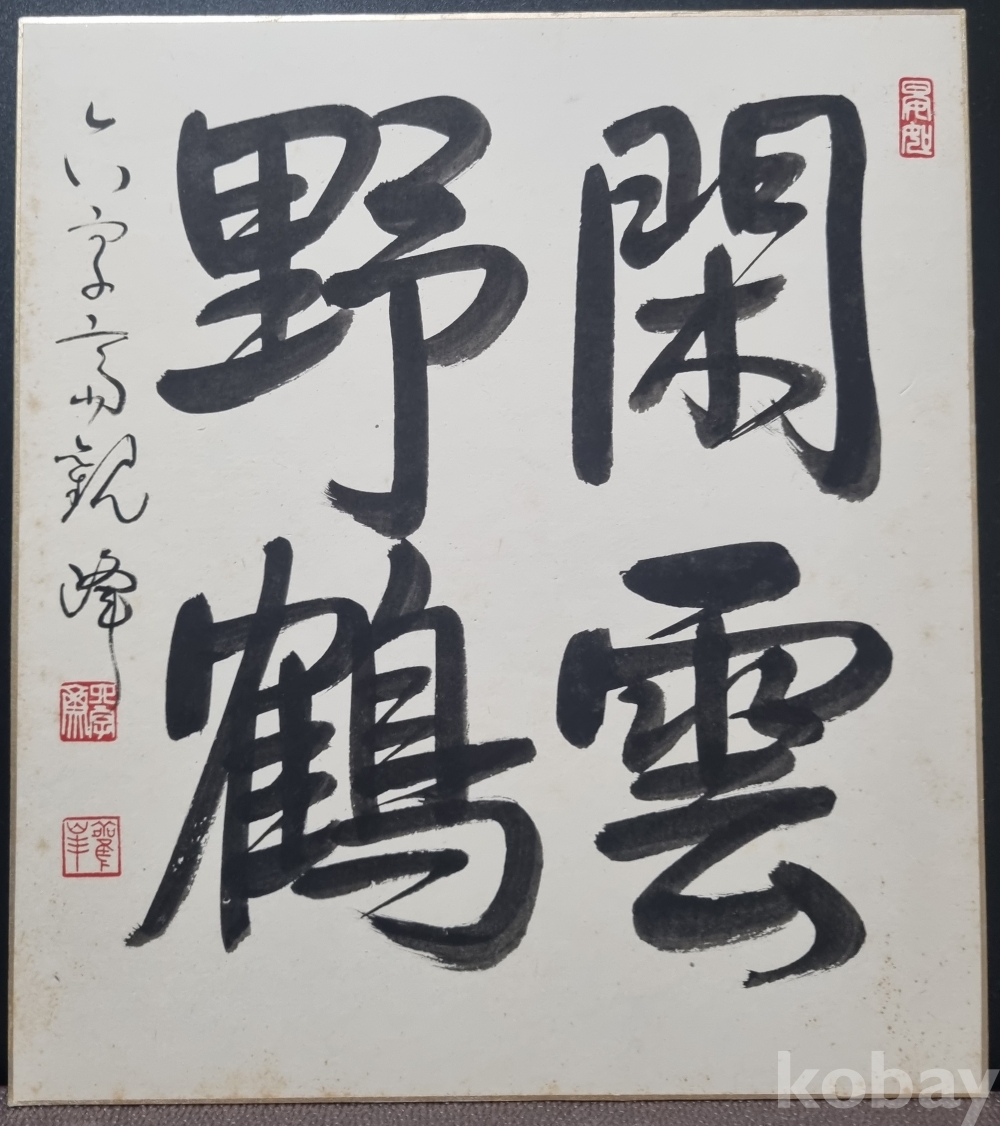 閑雲
野鶴
六字高觀峰
kobay